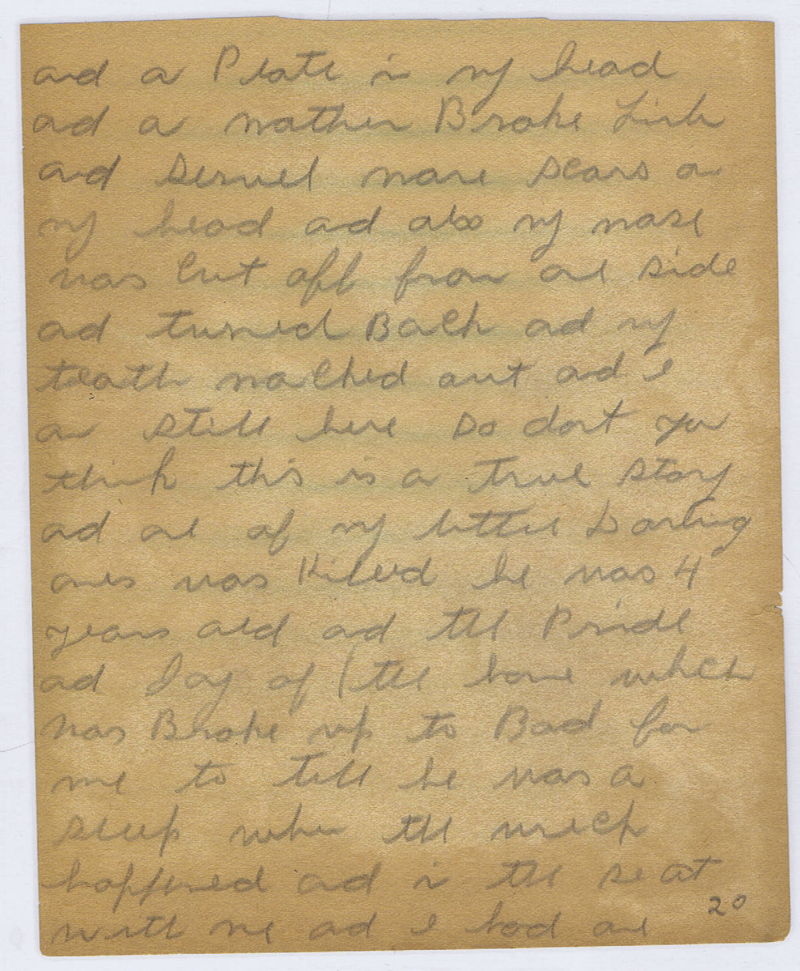 and a Plate in my head
ad a nother Broke Limb
and servel more scars on
my head ad also my nose
was Cut off from one side
ad turned Back ad my
teath nocked out ad I
am still here so dont you
think this is a True story
ad one of my little Darling
ones was Killed he was 4
years old ad the Pride
ad Joy of the home which
was Broke up to Bad for
me to tell he was a
sleep when the wreck
happened ad in the seat
with me ad I had one
20